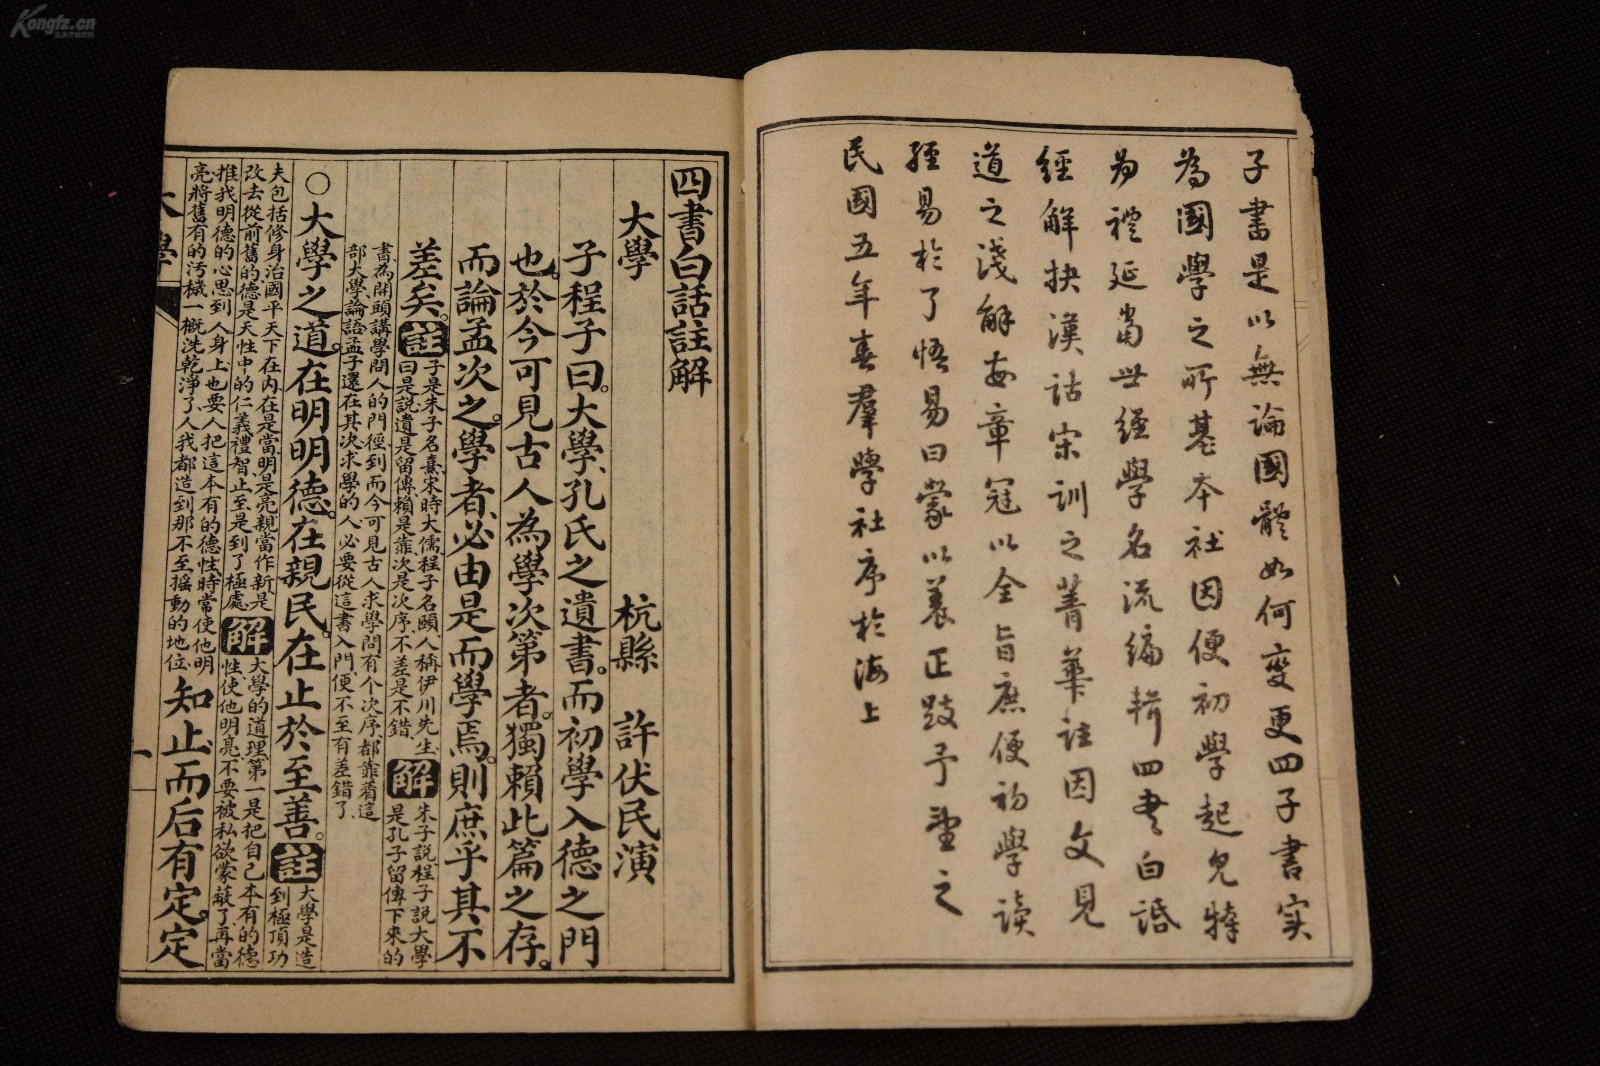 子書是以無論國體如何變更四子書实
為國學之所基本社因便初學起見特
为禮延當世經學名流编辑四書白話
經解抉漢詁宋訓之菁華註因文見
道之淺解每章冠以全旨庶便初学读
經易於了悟易曰蒙以養正跂予望之
民國五年春羣學社序於海上
四書白話註解
大學
杭縣 許伏民演
子程子曰。大學、孔氏之遺書。而初學入德之門
也。於今可見古人為學次第者。獨賴此篇之存。
而論孟次之。學者、必由是而學焉。則庶乎其不
差矣。
註 子是朱子名熹、宋時大儒程子名頤、人稱伊川先生、
曰是說、遺是留傳、賴是靠、次是次序、不差是不錯、
解 朱子說、程子說、大學
是孔子留傳下來的
書、為開頭講學問人的門徑、到而今可見古人求學問、有个次序、都靠着這
部大學、論語孟子還在其次、求學的人、必要從這書入門、便不至有差錯了、
○大學之道。在明明德。在親民。在止於至善。
註 大學是造
到極頂功
夫、包括修身治國平天下在內、在是當、明是亮、親當作新、是
改去從前舊的、德是天性中的仁義禮智、止至是到了極處、
解 大學的道理、第一是把自己本有的德
性、使他明亮、不要被私欲蒙蔽了、再當
推我明德的心思、到人身上、也要人把這本有的德性、時常使他明
亮、將舊有的汚穢、一概洗乾淨了、人我都造到那不至搖動的地位、
知止而后有定。定
大學
一
Kongfz.cn